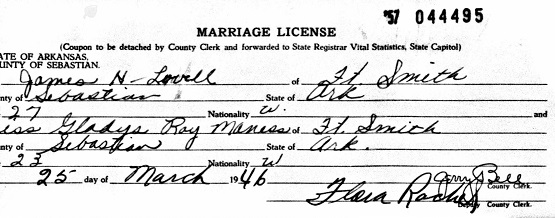 '57 044495
MARRIAGE LICENSE
(Coupon to be detached by County Clerk and forwarded to State Registrar Vital Statistics, State Capitol)
ATE OF ARKANSAS,
UNTY OF SEBASTIAN.
James H- Lovell of Ft. Smith
nty of Sebastian State of Ark
27 Nationality W. and
iss Gladys Roy Maness of Ft. Smith
nty of Sebastian State of Ark.
23 Nationality W
25 day of March 1946
Jerry Bell County Clerk.
Flora Deputy County Clerk.